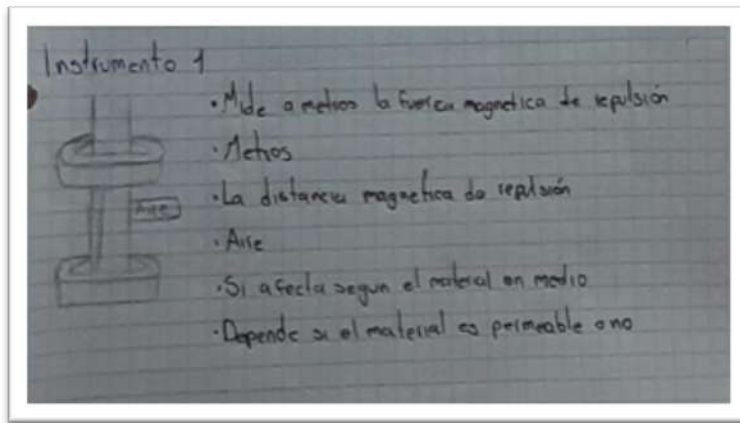 Instrumento 1
• Mide a metros la fuerca magnetica de repulsión
• Metros
• La distancia magnetica de repulsión
Aire
• Aire
• Si afecta segun el material en medio
• Depende si el material es permeable o no